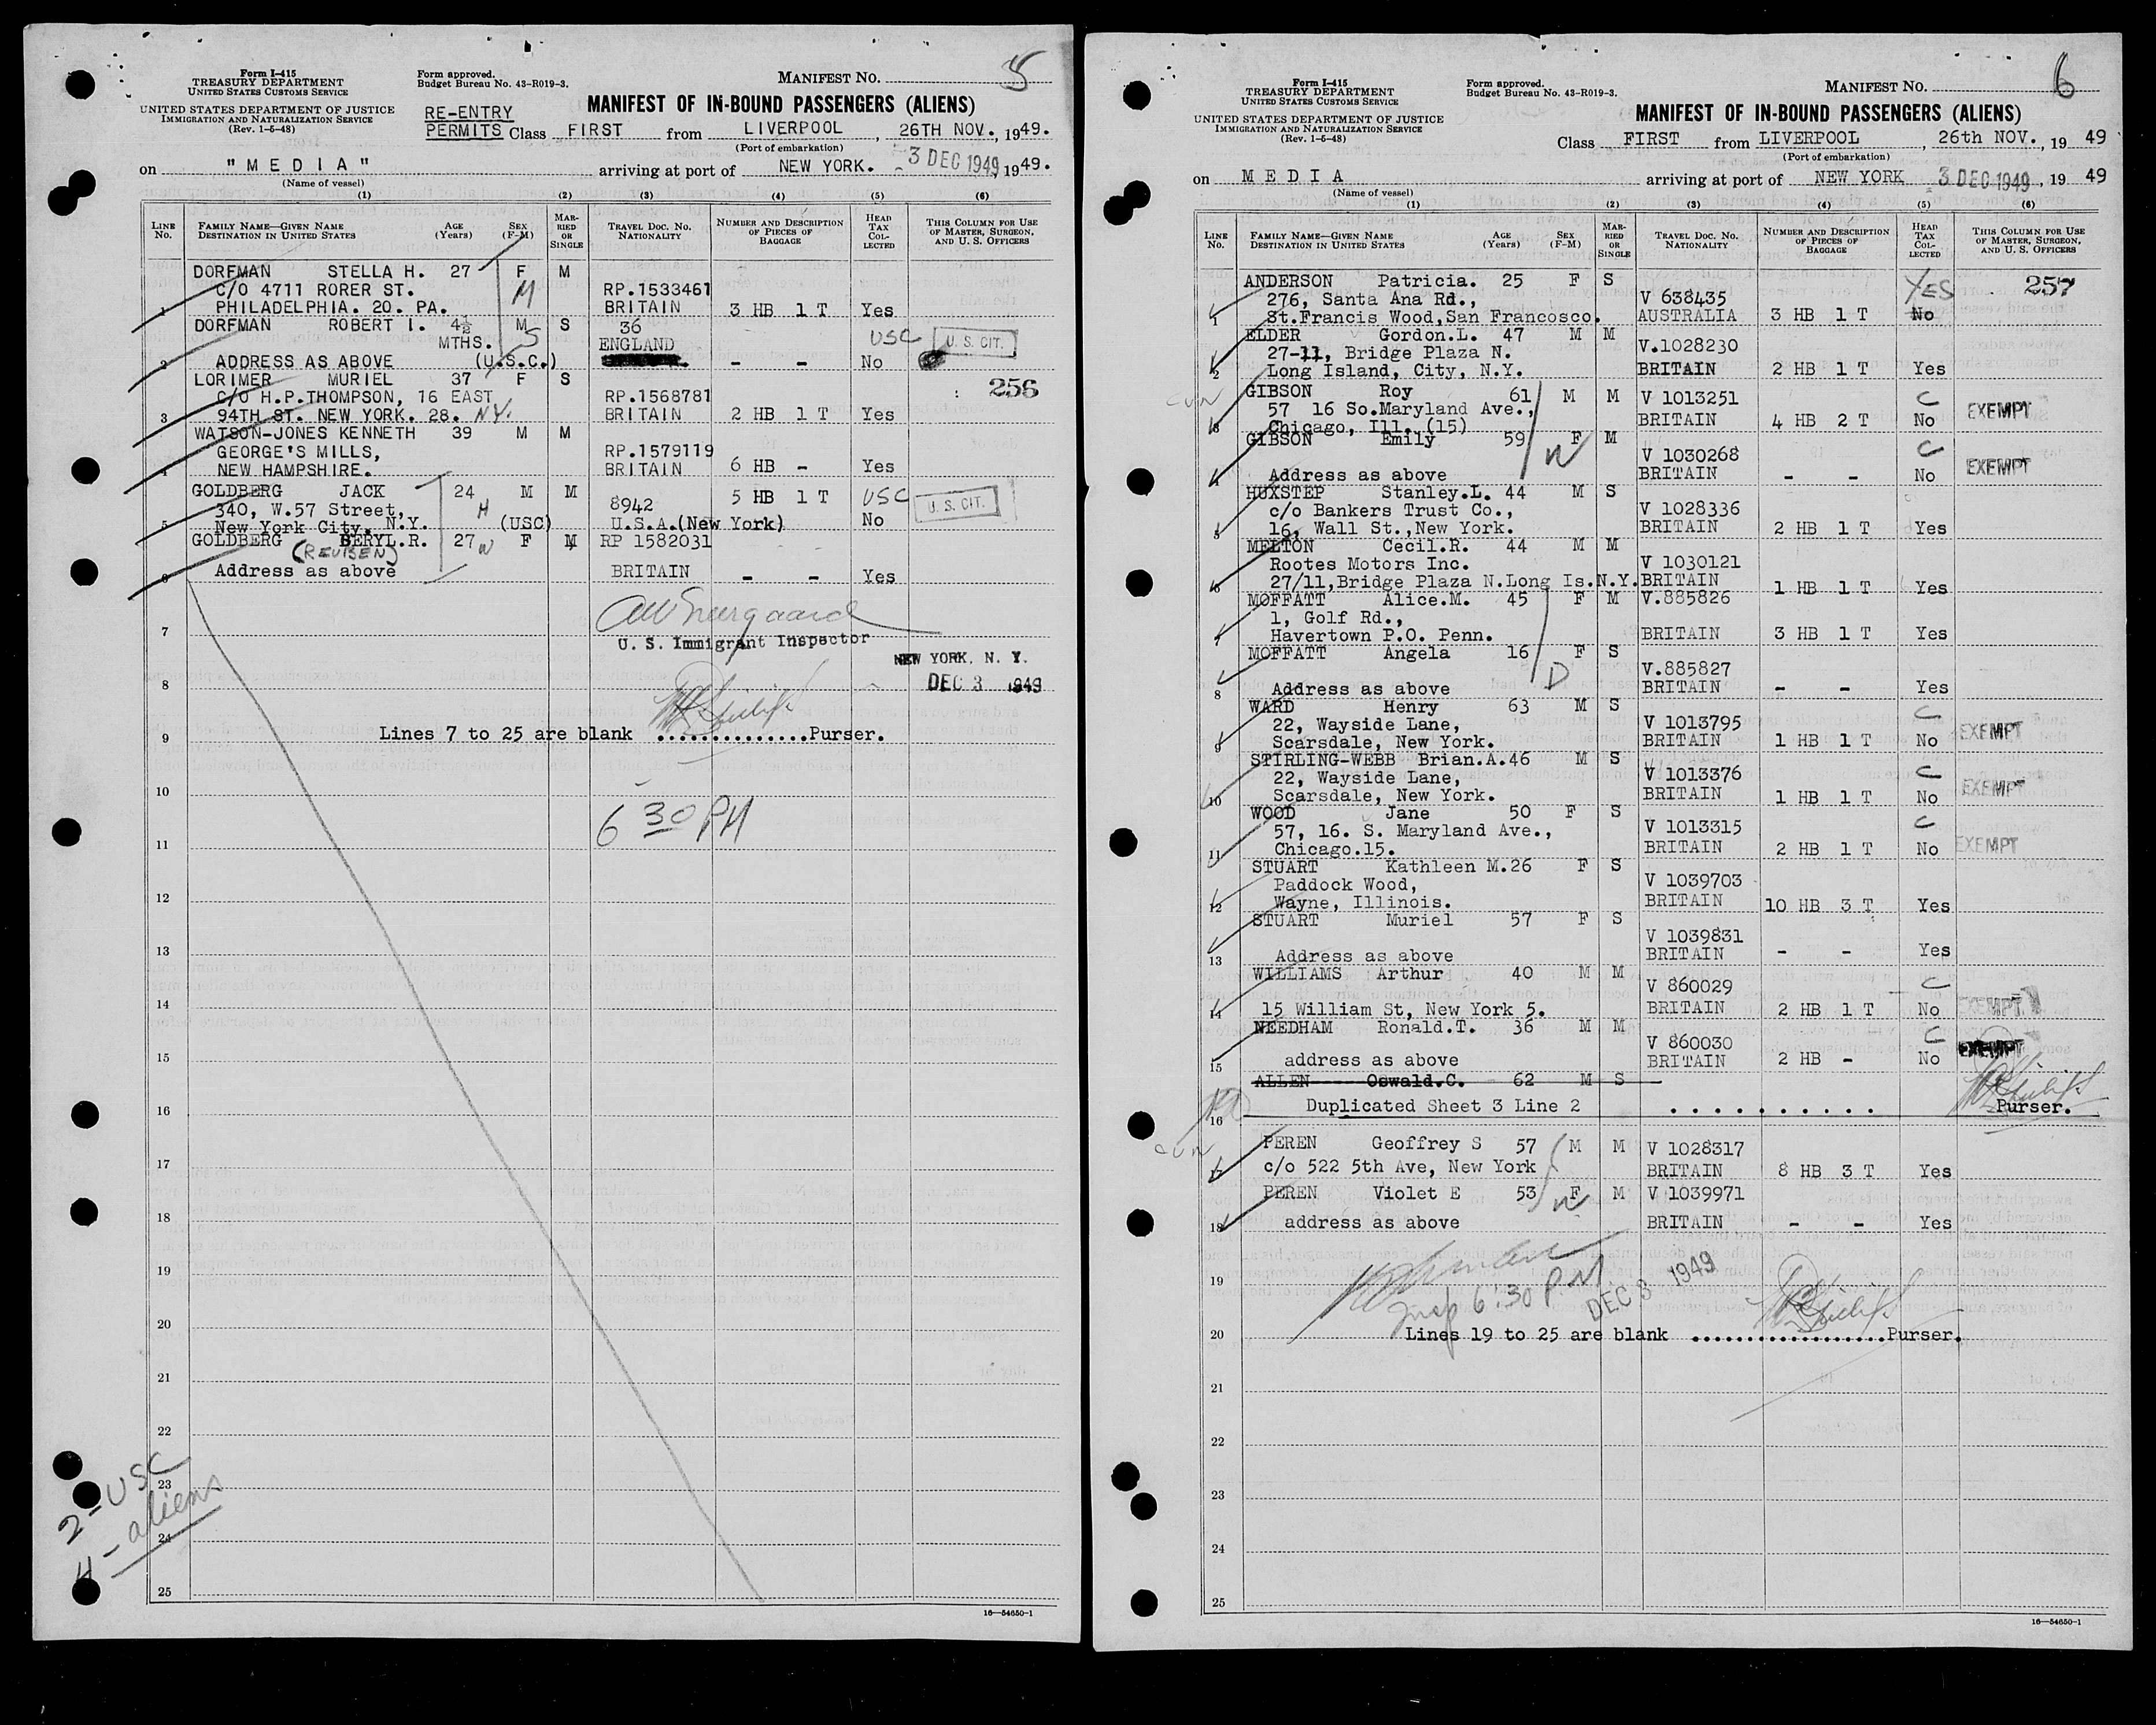 Form I-415
TREASURY DEPARTMENT
UNITED STATES CUSTOMS SERVICE
UNITED STATES DEPARTMENT OF JUSTICE
IMMIGRATION AND NATURALIZATION SERVICE
(Rev. 1-5-48)
Form approved.
Budget Bureau No. 43-R019-3.
MANIFEST NO. 5
MANIFEST OF IN-BOUND PASSENGERS (ALIENS)
RE-ENTRY
PERMITS Class FIRST from LIVERPOOL, 26TH NOV., 1949.
(Port of embarkation)
on "MEDIA" arriving at port of NEW YORK. 3 DEC 1949 1949.
(Name of vessel)
(1) (2) (3) (4) (5) (6)
LINE No. FAMILY NAME—GIVEN NAME DESTINATION IN UNITED STATES AGE (Years) SEX (F-M) MARRIED OR SINGLE TRAVEL DOC. NO. NATIONALITY NUMBER AND DESCRIPTION OF PIECES OF BAGGAGE HEAD TAX COLLECTED THIS COLUMN FOR USE OF MASTER, SURGEON, AND U. S. OFFICERS
DORFMAN STELLA H. 27 F M
C/O 4711 RORER ST. M RP.1533461
1 PHILADELPHIA. 20. PA. BRITAIN 3 HB 1 T Yes
DORFMAN ROBERT I. 4½ M S 36 USC U. S. CIT.
MTHS. S ENGLAND
2 ADDRESS AS ABOVE (U.S.C.) - - No
LORIMER MURIEL 37 F S 256
C/O H.P.THOMPSON, 16 EAST RP.1568781
3 94TH ST. NEW YORK. 28. N.Y. BRITAIN 2 HB 1 T Yes
WATSON-JONES KENNETH 39 M M
GEORGE'S MILLS, RP.1579119
4 NEW HAMPSHIRE. BRITAIN 6 HB - Yes
GOLDBERG JACK 24 M M 5 HB 1 T USC U. S. CIT.
340, W.57 Street, H 8942
5 New York City, N.Y. (USC) U.S.A.(New York) No
GOLDBERG BERYL.R. 27 W F M RP 1582031
(REUBEN)
6 Address as above BRITAIN - - Yes
7 U. S. Immigrant Inspector
NEW YORK, N. Y.
8 DEC 3 1949
9 Lines 7 to 25 are blank ..............Purser.
10
6 30 PM
11
12
13
14
15
16
17
18
19
20
21
22
23
24
25
2 - USC
4 - aliens
16—54650-1
Form I-415
TREASURY DEPARTMENT
UNITED STATES CUSTOMS SERVICE
UNITED STATES DEPARTMENT OF JUSTICE
IMMIGRATION AND NATURALIZATION SERVICE
(Rev. 1-5-48)
Form approved.
Budget Bureau No. 43-R019-3.
MANIFEST NO. 6
MANIFEST OF IN-BOUND PASSENGERS (ALIENS)
Class FIRST from LIVERPOOL, 26th NOV., 19 49
(Port of embarkation)
on MEDIA arriving at port of NEW YORK 3 DEC 1949, 19 49
(Name of vessel)
(1) (2) (3) (4) (5) (6)
LINE No. FAMILY NAME—GIVEN NAME DESTINATION IN UNITED STATES AGE (Years) SEX (F-M) MARRIED OR SINGLE TRAVEL DOC. NO. NATIONALITY NUMBER AND DESCRIPTION OF PIECES OF BAGGAGE HEAD TAX COLLECTED THIS COLUMN FOR USE OF MASTER, SURGEON, AND U. S. OFFICERS
ANDERSON Patricia. 25 F S YES 257
276, Santa Ana Rd., V 638435
1 St.Francis Wood,San Francosco. AUSTRALIA 3 HB 1 T No
ELDER Gordon.L. 47 M M
27-11, Bridge Plaza N. V.1028230
2 Long Island, City, N.Y. BRITAIN 2 HB 1 T Yes
GIBSON Roy 61 M M V 1013251 C
57 16 So.Maryland Ave., EXEMPT
3 Chicago, Ill. (15) BRITAIN 4 HB 2 T No
GIBSON Emily 59 F M C
W V 1030268 EXEMPT
4 Address as above BRITAIN - - No
HUXSTEP Stanley.L. 44 M S
c/o Bankers Trust Co., V 1028336
5 16, Wall St.,New York. BRITAIN 2 HB 1 T Yes
MELTON Cecil.R. 44 M M
Rootes Motors Inc. V 1030121
6 27/11,Bridge Plaza N.Long Is.N.Y. BRITAIN 1 HB 1 T Yes
MOFFATT Alice.M. 45 F M V.885826
1, Golf Rd.,
7 Havertown P.O. Penn. BRITAIN 3 HB 1 T Yes
MOFFATT Angela 16 F S
D V.885827
8 Address as above BRITAIN - - Yes
WARD Henry 63 M S C
22, Wayside Lane, V 1013795 EXEMPT
9 Scarsdale, New York. BRITAIN 1 HB 1 T No
STIRLING-WEBB Brian.A. 46 M S
22, Wayside Lane, V 1013376 C EXEMPT
10 Scarsdale, New York. BRITAIN 1 HB 1 T No
WOOD Jane 50 F S C
57, 16. S. Maryland Ave., V 1013315
11 Chicago.15. BRITAIN 2 HB 1 T No EXEMPT
STUART Kathleen M. 26 F S
Paddock Wood, V 1039703
12 Wayne, Illinois. BRITAIN 10 HB 3 T Yes
STUART Muriel 57 F S
V 1039831
13 Address as above BRITAIN - - Yes
WILLIAMS Arthur 40 M M
V 860029 C
14 15 William St, New York 5. BRITAIN 2 HB 1 T No EXEMPT
NEEDHAM Ronald.T. 36 M M C
V 860030 EXEMPT
15 address as above BRITAIN 2 HB - No
ALLEN Oswald.C. 62 M S
16 Duplicated Sheet 3 Line 2 .......... Purser.
PEREN Geoffrey S 57 M M V 1028317
17 c/o 522 5th Ave, New York BRITAIN 8 HB 3 T Yes
PEREN Violet E 53 F M V 1039971
W
18 address as above BRITAIN - - Yes
19
Insp 6:30 PM DEC 3 1949
20 Lines 19 to 25 are blank .................Purser.
21
22
23
24
25
16—54650-1